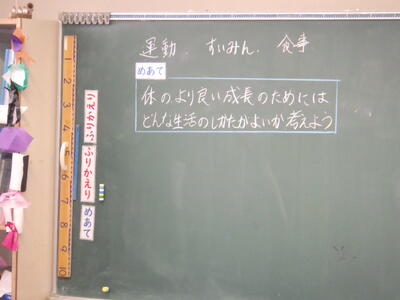 運動.すいみん.食事
めあて
体のより良い成長のためには
どんな生活のしかたがよいか考えよう
ふりかえり
ふりかえり
めあて
1
2
3
4
5
6
7
8
9
10